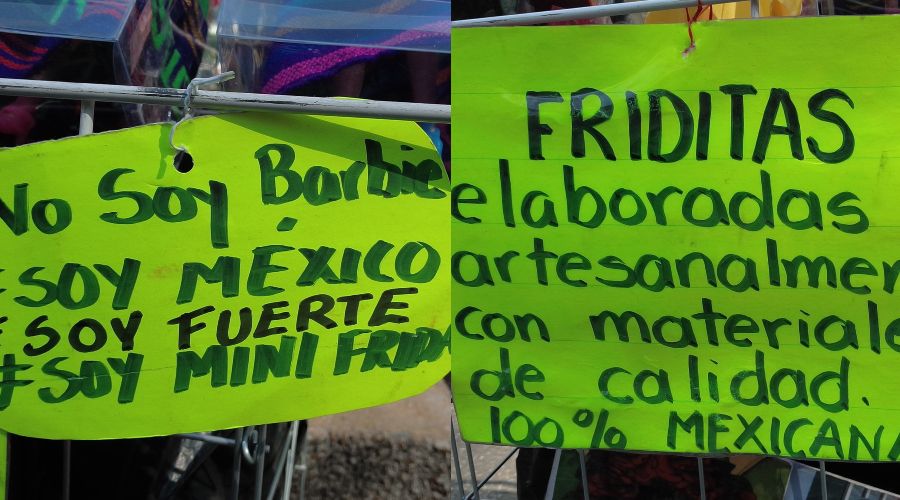 No Soy Barbie
#SOY MÉXICO
#SOY FUERTE
#SOY MINI FRIDA
FRIDITAS
elaboradas
artesanalmen
con materiale
de calidad.
100% MEXICANA